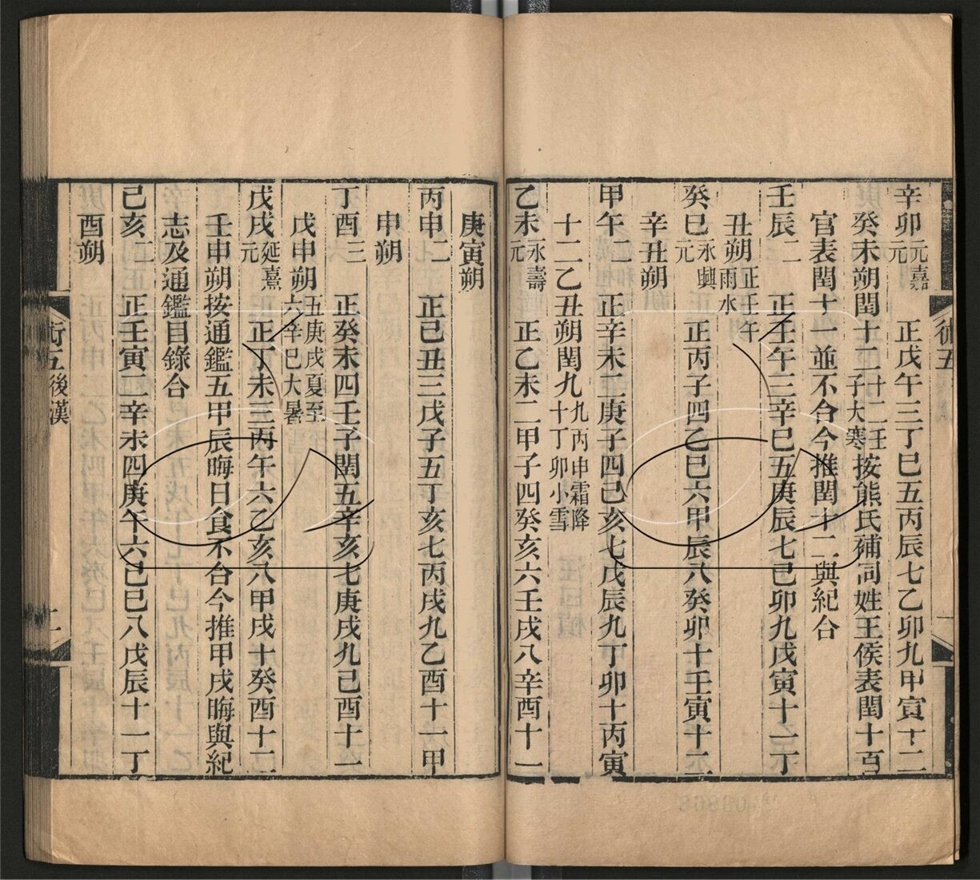 辛卯元嘉元 正戊午三丁巳五丙辰七乙卯九甲寅十二
癸未朔閏十二十二壬子大寒按熊氏補同姓王侯表閏十百
官表閏十一並不合今推閏十二與紀合
壬辰二 正壬午三辛巳五庚辰七己卯九戊寅十一丁
丑朔正壬午雨水
癸巳永興元 正丙子四乙巳六甲辰八癸卯十壬寅十二
辛丑朔
甲午二 正辛未二庚子四己亥七戊辰九丁卯十丙寅
十二乙丑朔閏九九丙申霜降十丁卯小雪
乙未永壽元 正乙未二甲子四癸亥六壬戌八辛酉十一
庚寅朔
丙申二 正己丑三戊子五丁亥七丙戌九乙酉十一甲
申朔
丁酉三 正癸未四壬子閏五辛亥七庚戌九己酉十一
戊申朔五庚戌夏至六辛巳大暑
戊戌延熹元 正丁未三丙午六乙亥八甲戌十癸酉十二
壬申朔按通鑑五甲辰晦日食不合今推甲戌晦與紀
志及通鑑目錄合
己亥二 正壬寅二辛未四庚午六己巳八戊辰十一丁
酉朔
術五後漢
術五